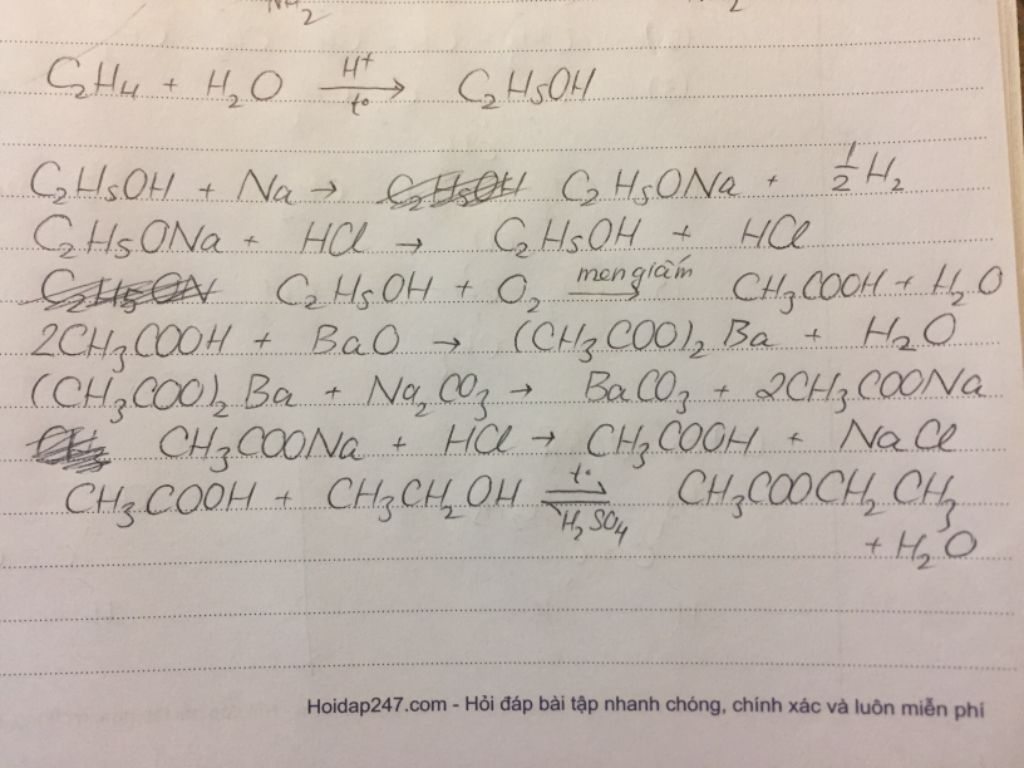 NH₂ 2
C₂H₄ + H₂O —H⁺/t°→ C₂H₅OH
C₂H₅OH + Na → C₂H₅OH C₂H₅ONa + 1/2 H₂
C₂H₅ONa + HCl → C₂H₅OH + HCl
C₂H₅ON C₂H₅OH + O₂ —men giấm→ CH₃COOH + H₂O
2CH₃COOH + BaO → (CH₃COO)₂Ba + H₂O
(CH₃COO)₂Ba + Na₂CO₃ → BaCO₃ + 2CH₃COONa
CH₃ CH₃COONa + HCl → CH₃COOH + NaCl
CH₃COOH + CH₃CH₂OH ⇌ t° H₂SO₄ CH₃COOCH₂CH₃
+ H₂O
Hoidap247.com - Hỏi đáp bài tập nhanh chóng, chính xác và luôn miễn phí